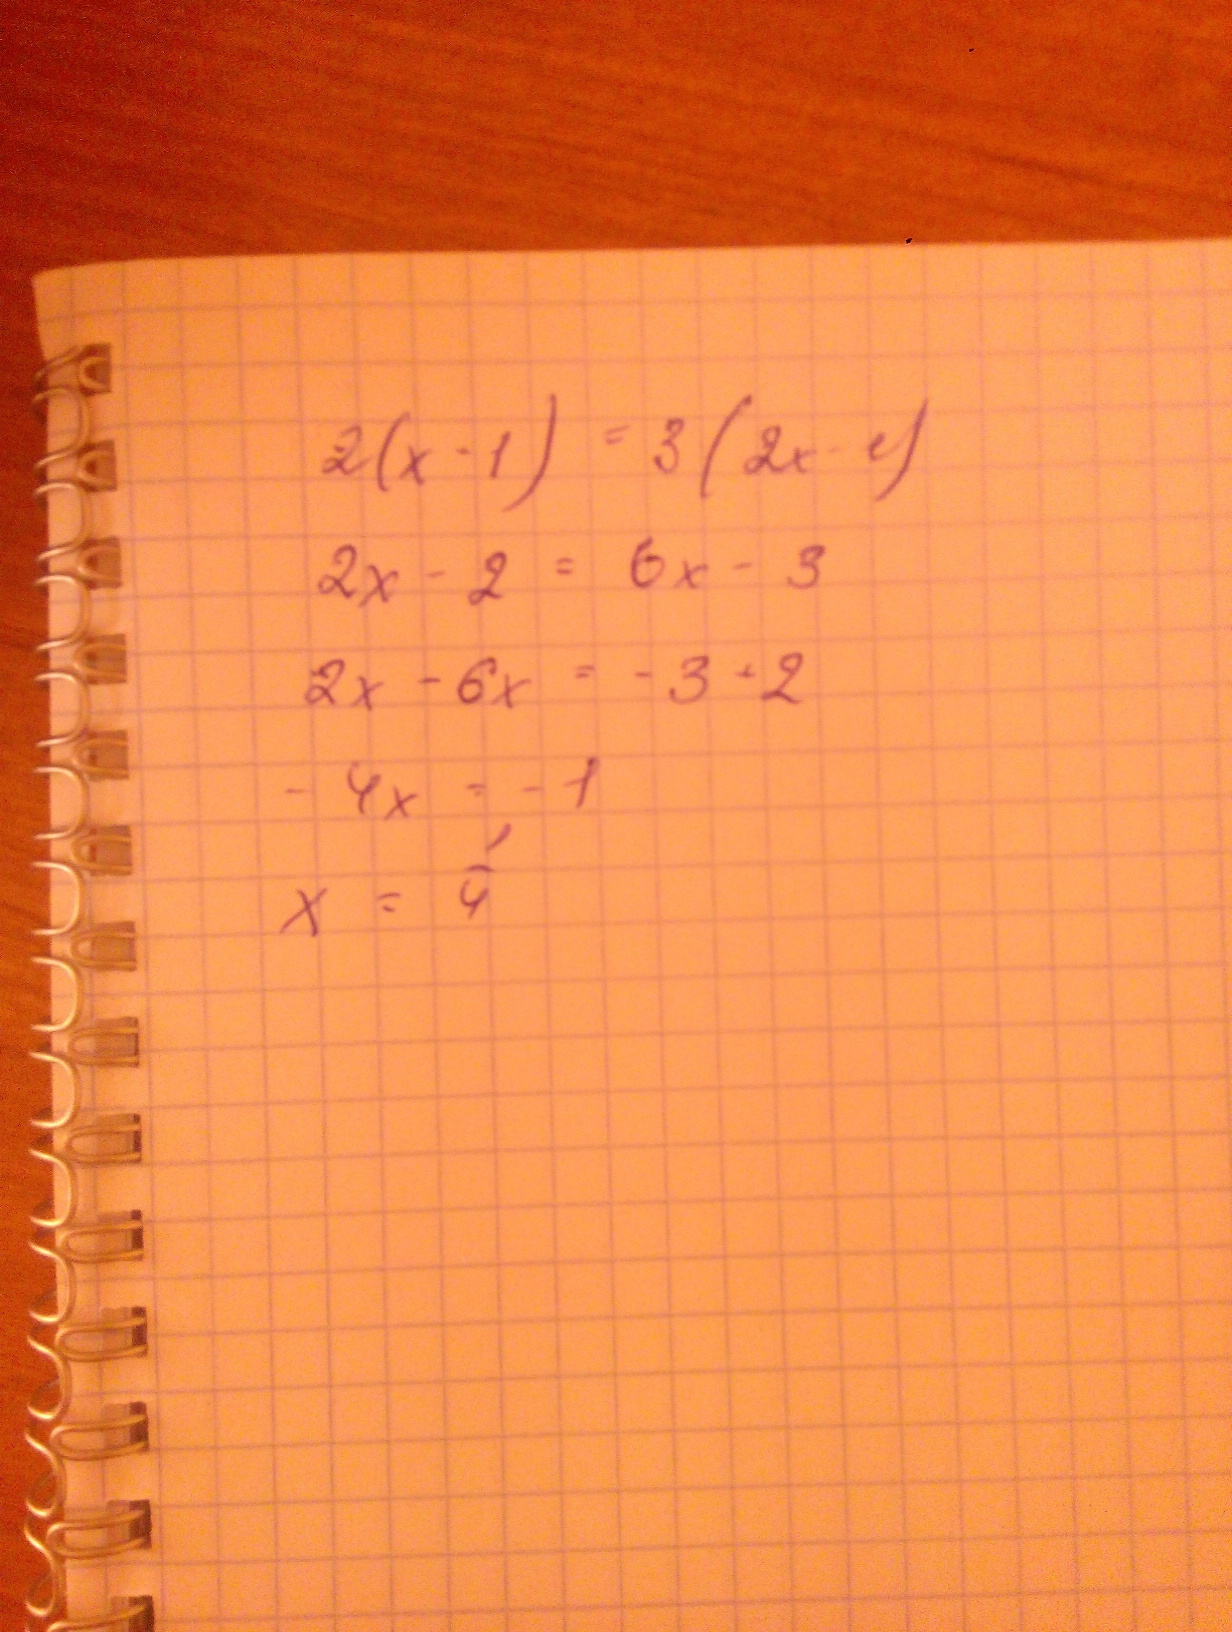 2(x - 1) = 3(2x - 1)
2x - 2 = 6x - 3
2x - 6x = - 3 + 2
- 4x = - 1
x = 1/4